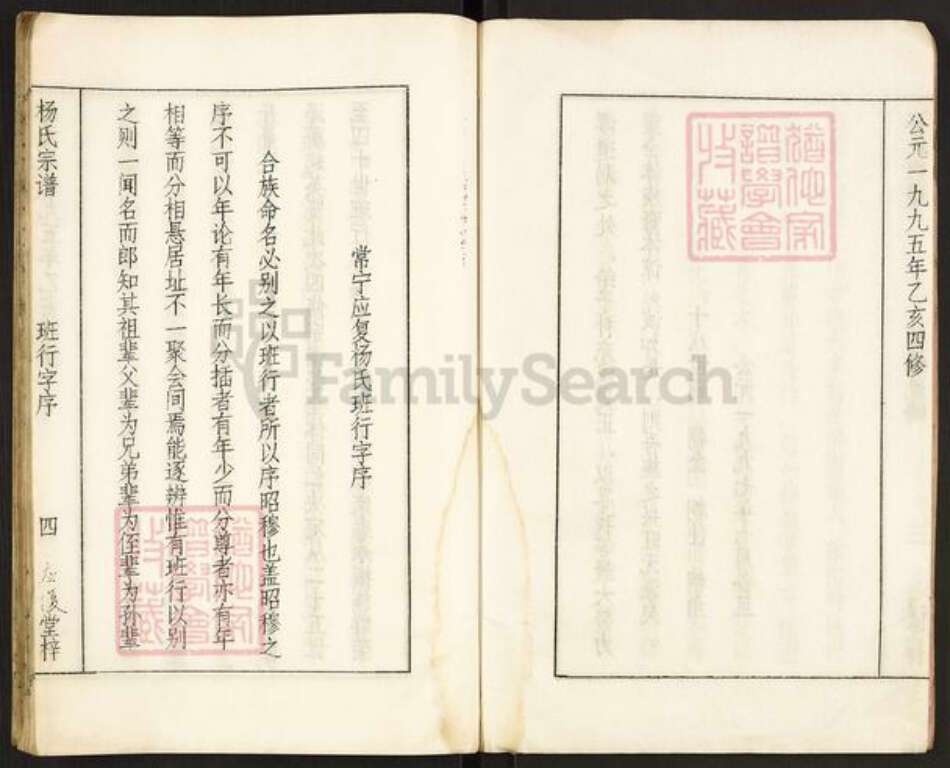 公元一九九五年乙亥四修
猶他家
譜學會
收藏
常宁应复杨氏班行字序
合族命名必别之以班行者所以序昭穆也盖昭穆之
序不可以年论有年长而分插者有年少而分尊者亦有年
相等而分相悬居址不一聚会间焉能逐辨惟有班行以别
之则一闻名而郎知其祖辈父辈为兄弟辈为侄辈为孙辈
猶他家
譜學會
收藏
杨氏宗谱
班行字序
四
应复堂梓
FamilySearch